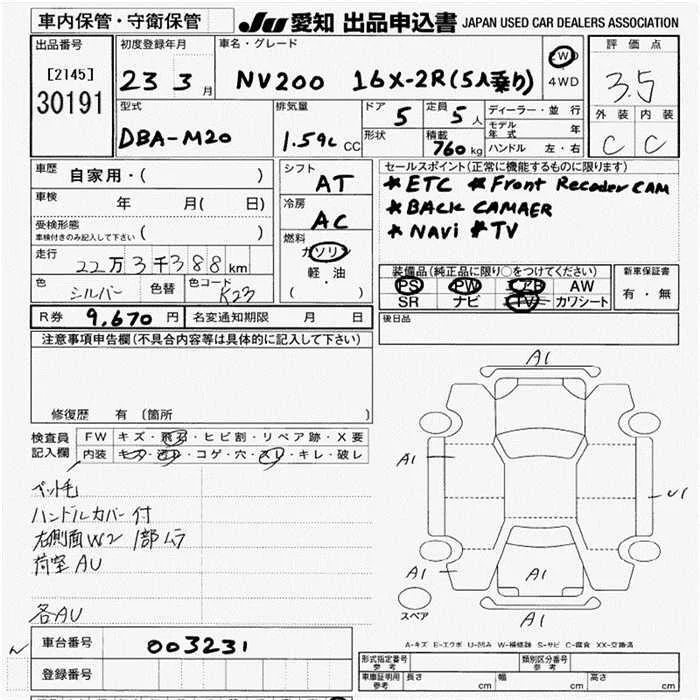 車内保管・守衛保管
JU 愛知 出品申込書 JAPAN USED CAR DEALERS ASSOCIATION
出品番号
[2145]
30191
初度登録年月
23 3 月
車名・グレード
NV200 16X-2R(5人乗り)
2WD
4WD
評価点
3.5
外装 内装
C C
型式
DBA-M20
排気量
1.59L CC
ドア 5
形状
定員 5 人
積載 760 kg
ディーラー・並行
モデル年式 年
ハンドル 左・右
車歴 自家用・( )
車検 年 月( 日)
受検形態
車検付きのみ記入して下さい ( )
走行 22万3千388km
色 シルバー 色替 色コード K23
シフト AT
冷房 AC
燃料
ガソリン
軽・油
( )
セールスポイント(正常に機能するものに限ります)
*ETC *Front Recoder CAM
*BACK CAMAER
*NAVi *TV
装備品(純正品に限り○をつけてください)
PS PW AB AW
SR ナビ TV カワシート
新車保証書
有・無
R券 9,670 円 名変通知期限 月 日
後日品
注意事項申告欄(不具合内容等は具体的に記入して下さい)
修復歴 有 (箇所 )
検査員記入欄
FW キズ・飛石・ヒビ割・リペア跡・X要
内装 キズ・汚レ・コゲ・穴・スレ・キレ・破レ
ペット毛
ハンドルカバー付
右側面W2 1部ムラ
荷室AU
各AU
A1
A1
U1
A1
A1
A1
A1
スペア
A-キズ E-エクボ U-凹み W-補修跡 S-サビ C-腐食 XX-交換済
車台番号 003231
登録番号
形式指定番号 参考
類別区分番号 参考
車庫証明用 参考 長さ cm 幅 cm 高さ cm